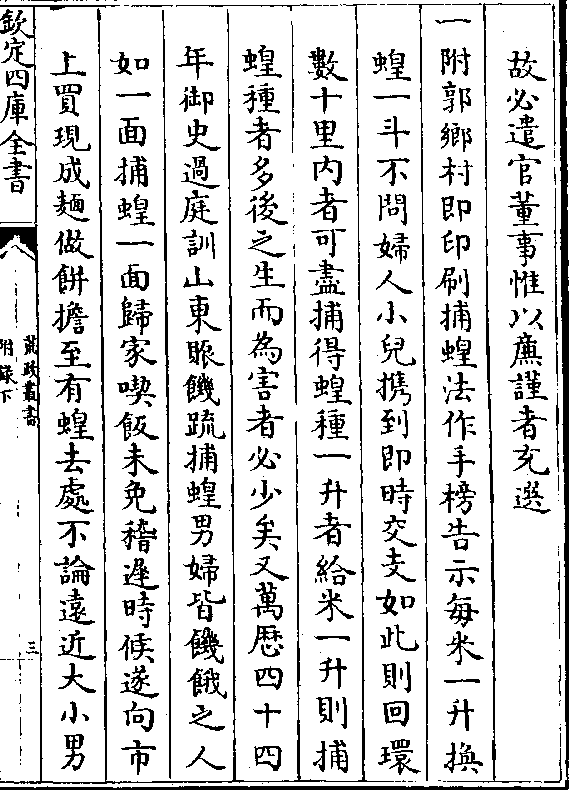 故必遣官董事惟以亷謹者充選
一附郭鄉村即印刷捕蝗法作手榜告示每米一升換
蝗一斗不問婦人小兒携到即時交支如此則回環
數十里内者可盡捕得蝗種一升者給米一升則捕
蝗種者多後之生而為害者必少矣又萬厯四十四
年御史過庭訓山東賑饑疏捕蝗男婦皆饑餓之人
如一面捕蝗一面歸家喫飯未免稽遲時候遂向市
上買現成麵做餅擔至有蝗去處不論遠近大小男
欽定四庫全書
荒政叢書
附錄下
三